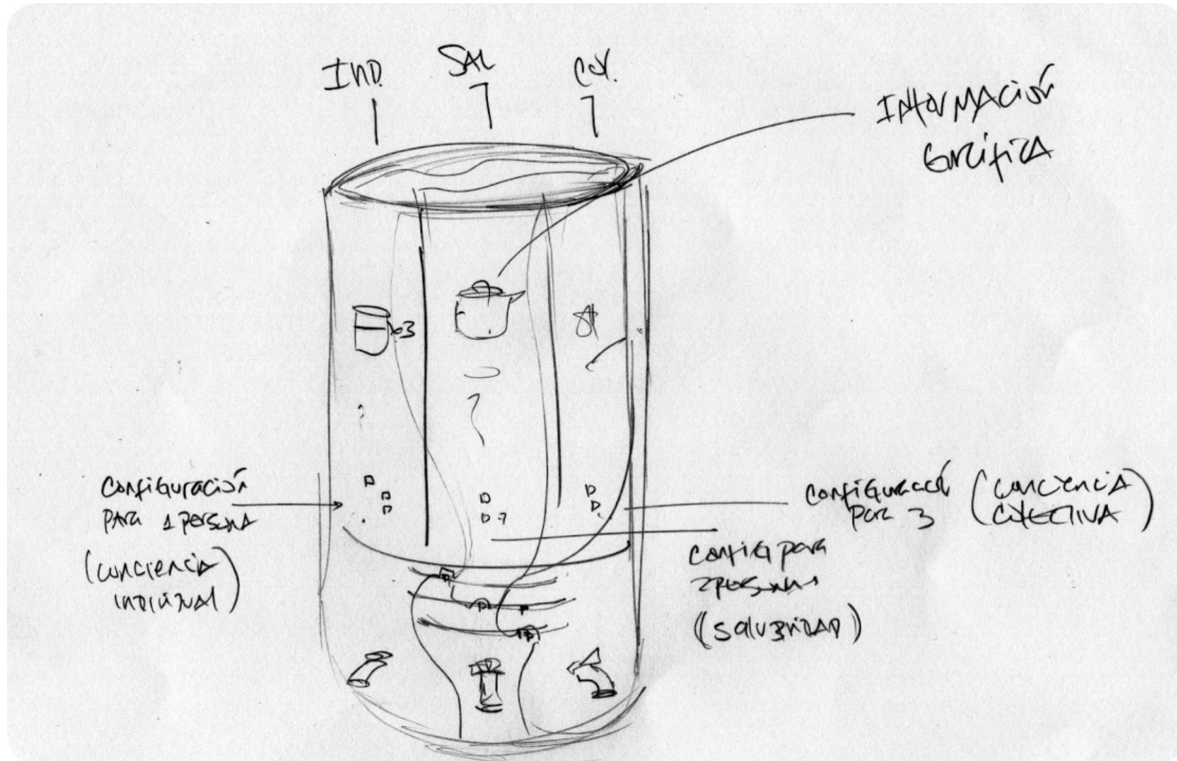 IND.
SAL
COL.
INFORMACIÓN
GRÁFICA
x3
CONFIGURACIÓN
PARA 1 PERSONA
(CONCIENCIA
INDIVIDUAL)
CONFIGURACIÓN
POR 3
(CONCIENCIA
COLECTIVA)
CONFIG para
2 PERSONAS
(SALUBRIDAD)